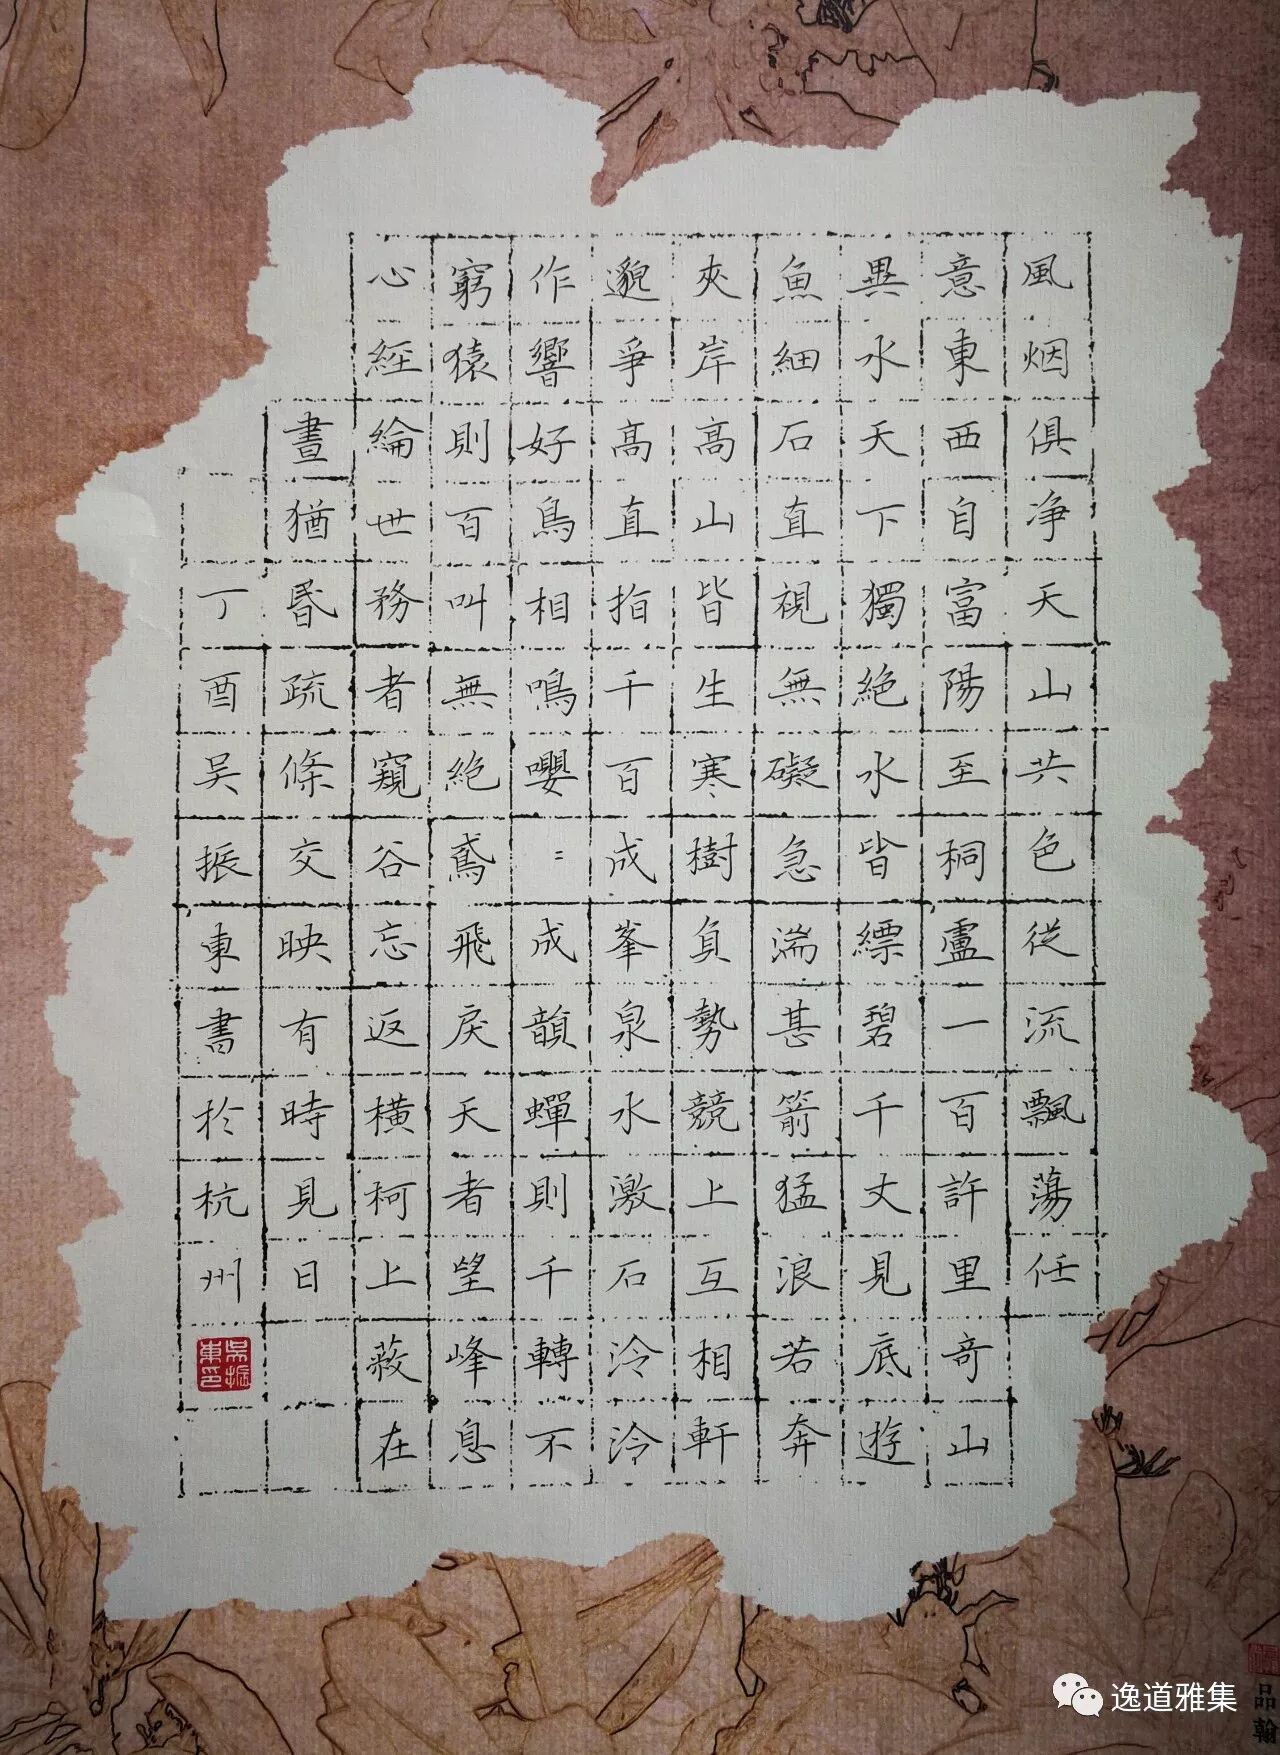 風烟俱净天山共色從流飄蕩任
意東西自富陽至桐盧一百許里奇山
異水天下獨絶水皆縹碧千丈見底遊
魚細石直視無礙急湍甚箭猛浪若奔
夾岸高山皆生寒樹負勢競上互相軒
邈爭高直指千百成峯泉水激石泠泠
作響好鳥相鳴嚶〻成韻蟬則千轉不
窮猿則百叫無絶鳶飛戾天者望峰息
心經綸世務者窺谷忘返橫柯上蔽在
晝猶昏疏條交映有時見日
丁酉吴振東書於杭州
吳振東印
品翰
逸道雅集